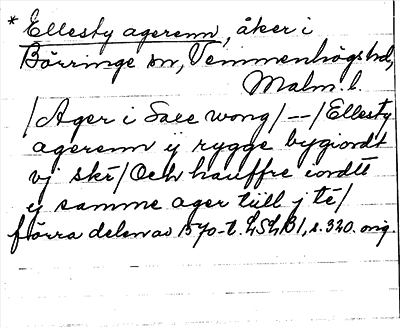 * Ellesty agerenn, åker i
Börringe sn, Vemmenhögs hd,
Malm. l.
/Ager i Saee wong/ -- /Ellesty
agerenn ij rygge bygiordt
vj skē/ Och hauffre iordtt
ij samme ager tiill j tē/
förra delen av 1570-t. LSLB1, s. 320. orig.